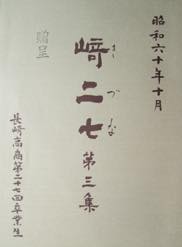 昭和六十年十月
贈呈
﨑二七
きづな
第三集
長崎高商第二十七回卒業生